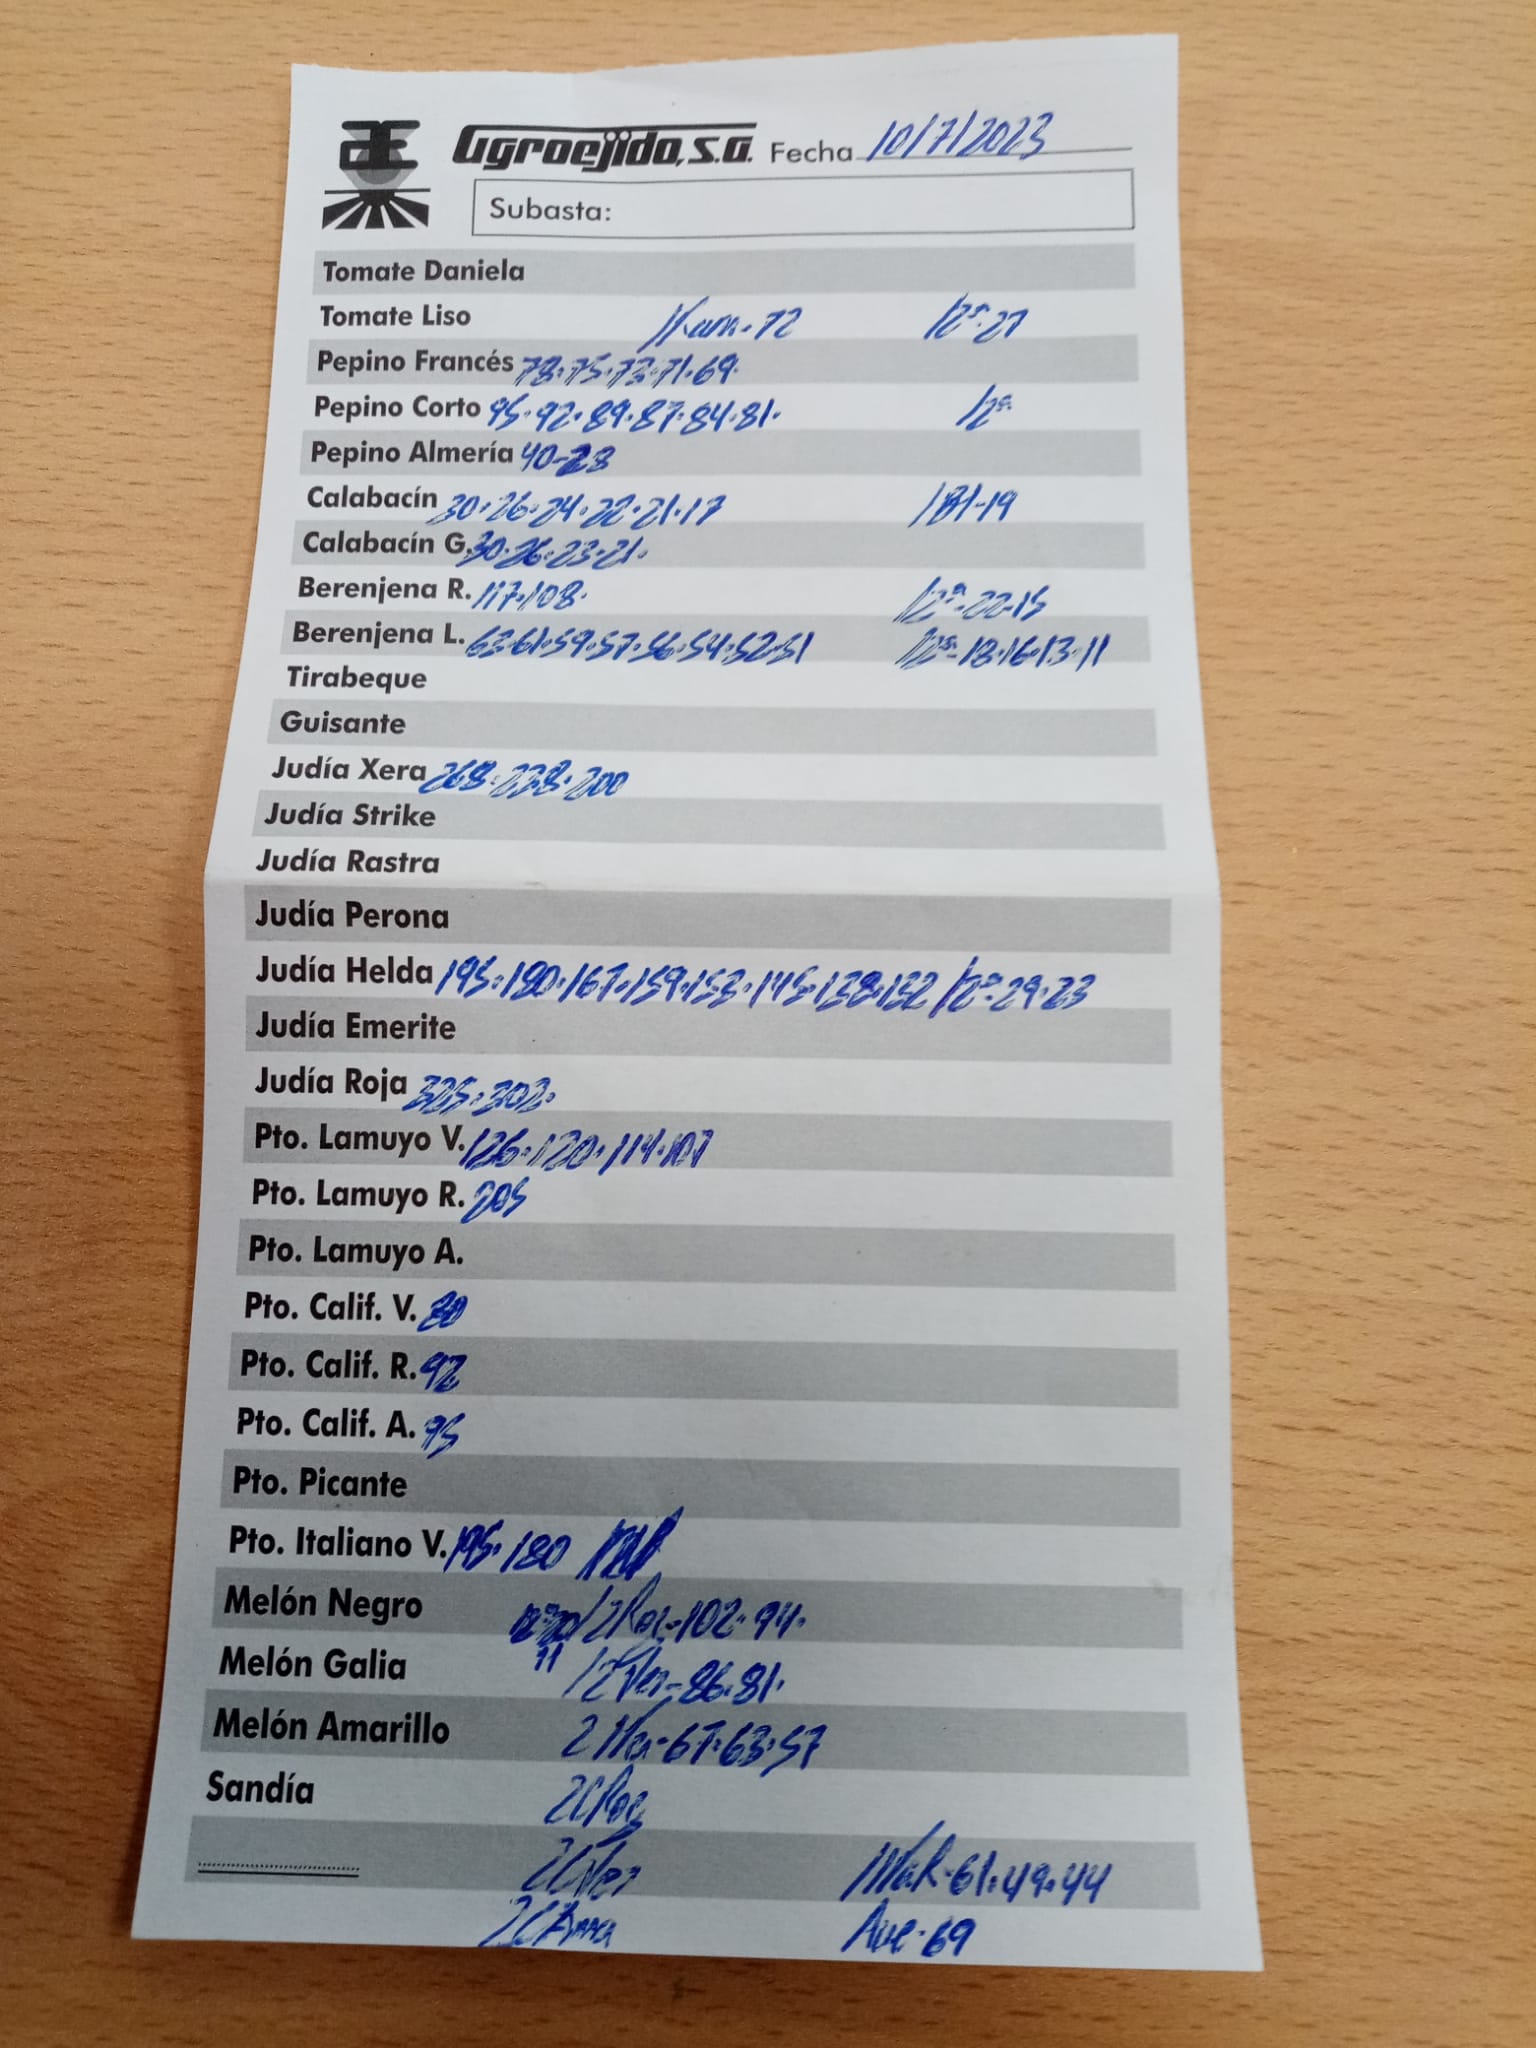 Agroejido, S.A. Fecha 10/7/2023
Subasta:
Tomate Daniela
Tomate Liso /Ram-72 /2ª-27
Pepino Francés 78·75·73·71·69·
Pepino Corto 95·92·89·87·84·81· /2ª
Pepino Almería 40-28
Calabacín 30·26·24·22·21·17 /Bl-19
Calabacín G. 30·26·23·21·
Berenjena R. 117·108· /2ª-22-15
Berenjena L. 63·61·59·57·56·54·52·51 /2ª-18·16·13·11
Tirabeque
Guisante
Judía Xera 268·238·200
Judía Strike
Judía Rastra
Judía Perona
Judía Helda 195·180·167·159·153·145·138·132 /2ª-29·23
Judía Emerite
Judía Roja 325·302·
Pto. Lamuyo V. 126·120·114·107
Pto. Lamuyo R. 205
Pto. Lamuyo A.
Pto. Calif. V. 80
Pto. Calif. R. 92
Pto. Calif. A. 95
Pto. Picante
Pto. Italiano V. 195·180
Melón Negro 102·94·
Melón Galia 86·81·
Melón Amarillo 67·63·57
Sandía
61·49·44
69